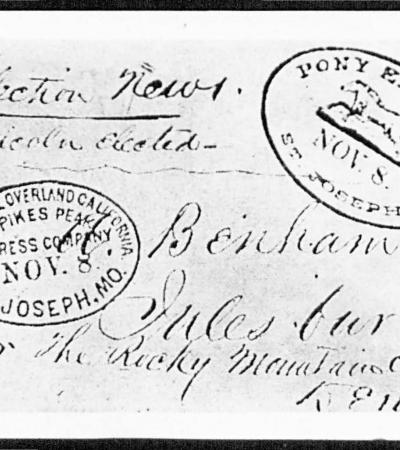 ection News.
incoln elected -
PONY E
NOV. 8.
ST. JOSEPH
OVERLAND CALIFORNIA
PIKES PEAK
RESS COMPANY
NOV. 8.
JOSEPH. MO.
Benham
Julesbur
The Rocky Mountain